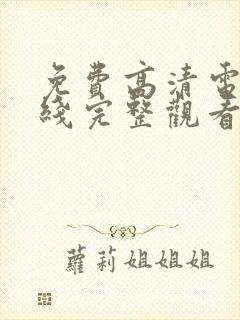 免費高清電
綫完整觀看
蘿莉姐姐姐